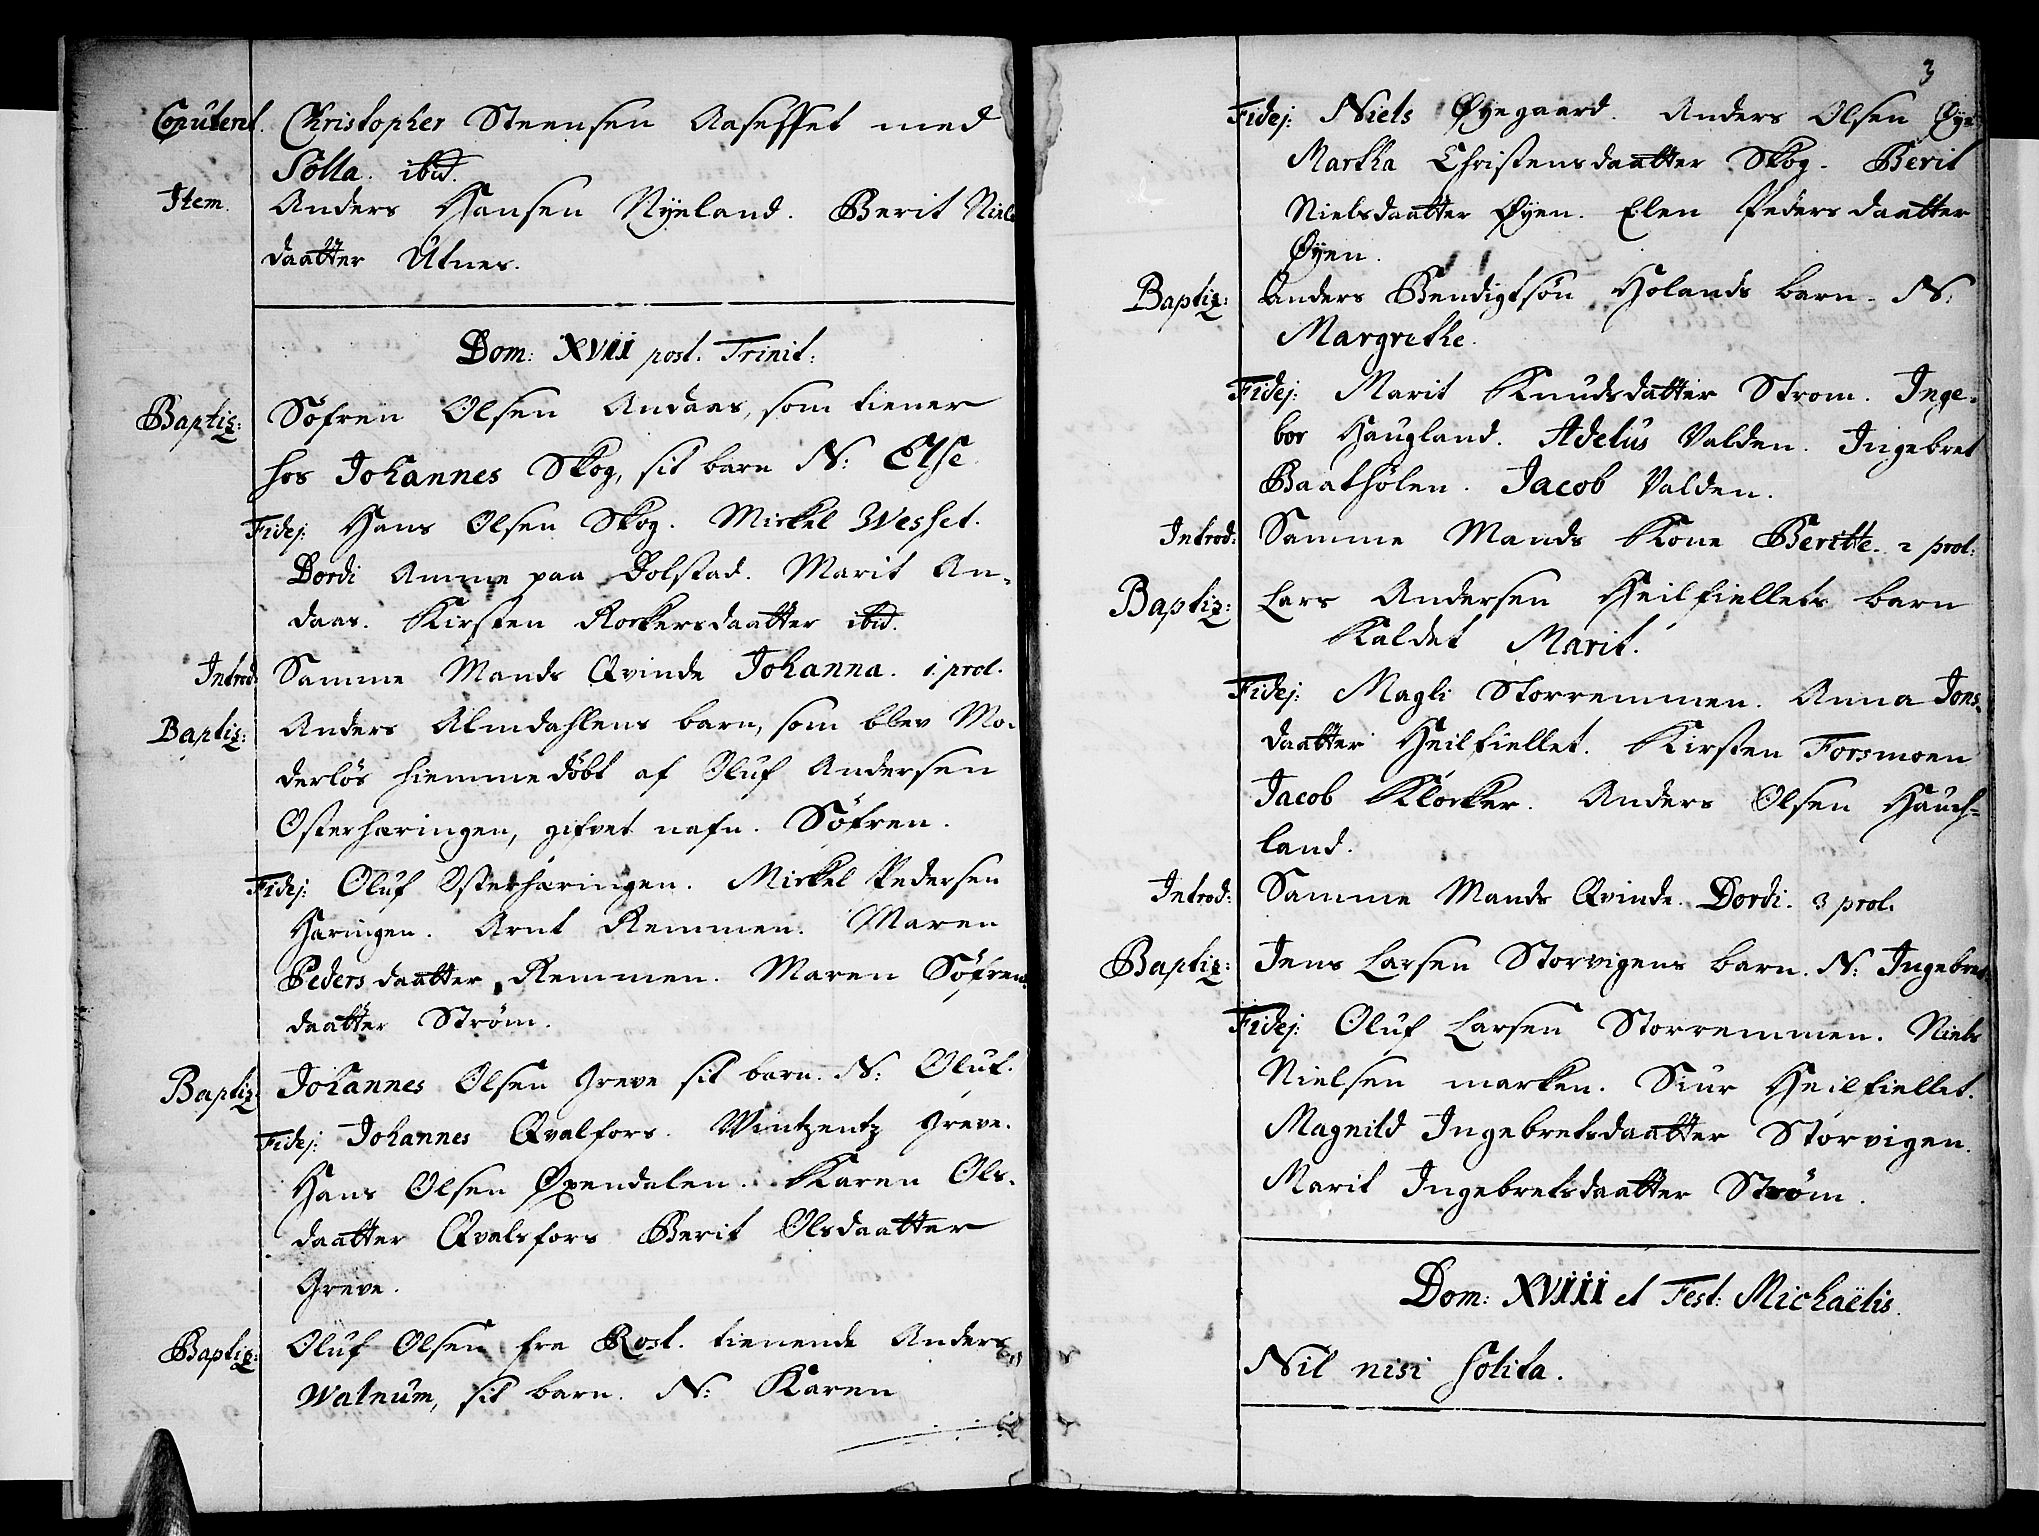 Copuleret. Christopher Steensen Aaseffet med
Sølla. ibid.
Item. Anders Hansen Nyeland. Berit Niels
daatter Utnes.
Dom: XVII post. Trinit:
Baptiz: Søfren Olsen Andaas, som tiener
hos Johannes Skog, sit barn N: Else.
Fidej: Hans Olsen Skog. Mickel Wesset.
Dordi Amme paa Dolstad. Marit An-
daas. Kirsten Rockersdaatter ibid.
Introd: Samme Mands Qvinde Johanna. 1. prol.
Baptiz: Anders Almdahlens barn, som blev Mo-
derløs hiemmedøbt af Oluf Andersen
Osterhæringen, gifvet nafn. Søfren.
Fidej: Oluf Osterhæringen. Mickel Pedersen
Hæringen. Arnt Remmen. Maren
Peders daatter Remmen. Maren Søfrens
daatter Strøm.
Baptiz: Johannes Olsen Greve sit barn. N: Oluf.
Fidej: Johannes Qvalfors. Wintzentz Greve.
Hans Olsen Øxendalen. Karen Ols-
daatter Qvalsfors Berit Olsdaatter
Greve.
Baptiz: Oluf Olsen fra Rost. tienende Anders
Walnum, sit barn. N: Karen
3
Fidej: Niels Øyegaard. Anders Olsen Øye
Martha Christensdaatter Skog. Berit
Nielsdaatter Øyen. Elen Peders daatter
Øyen.
Baptiz: Anders Bendigtsøn Holands barn. N:
Margrethe.
Fidej: Marit Knudsdatter Strom. Inge-
bor Haugland. Adelus Valden. Ingebret
Baathølen. Jacob Valden.
Introd: Samme Mands Kone Beritte. 2 prol:
Baptiz: Lars Andersen Heilfiellets barn
Kaldet Marit.
Fidej: Magli Storremmen. Anna Jons-
daatter Heilfiellet. Kirsten Forsmoen
Jacob Klocker. Anders Olsen Hauch-
land.
Introd: Samme Mands Qvinde. Dordi. 3 prol.
Baptiz: Jens Larsen Storvigens barn. N: Ingebret
Fidej: Oluf Larsen Storremmen. Niels
Nielsen marken. Siur Heilfiellet.
Magnild Ingebretsdaatter Storvigen.
Marit Ingebretsdaatter Strøm.
Dom: XVIII et Fest: Michaëlis.
Nil nisi solita.